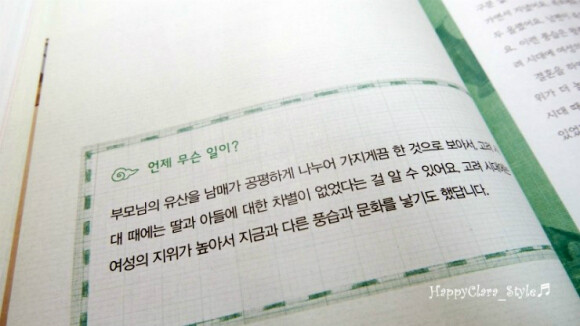 언제 무슨 일이?
부모님의 유산을 남매가 공평하게 나누어 가지게끔 한 것으로 보아서, 고려 시
대 때에는 딸과 아들에 대한 차별이 없었다는 걸 알 수 있어요. 고려 시대에는
여성의 지위가 높아서 지금과 다른 풍습과 문화를 낳기도 했답니다.
두
요. 이런 풍습은
려 시대에 여성
결혼을 하
위가 더
시대
있었
HappyClara_Style